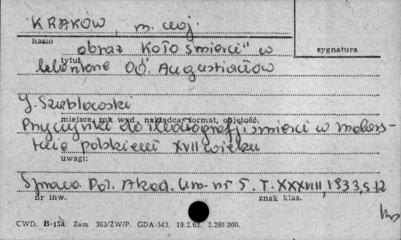 KRAKÓW, m. woj.
hasło
obraz "Koło śmierci" w
sygnatura
tytuł
klasztorze OO. Augustianów
J. Szablowski
miejsce, rok wyd., nakładca, format, objętość.
Przyczynki do ikonografji śmierci w malars-
twie polskiem XVII wieku
uwagi:
Spraw. Pol. Akad. Um. nr 5. T. XXXVIII, 1933, s. 12
nr inw. znak klas.
CWD. B-15a. Zam. 363/ZW/P. GDA-543. 19.2.62. 2.260.000.